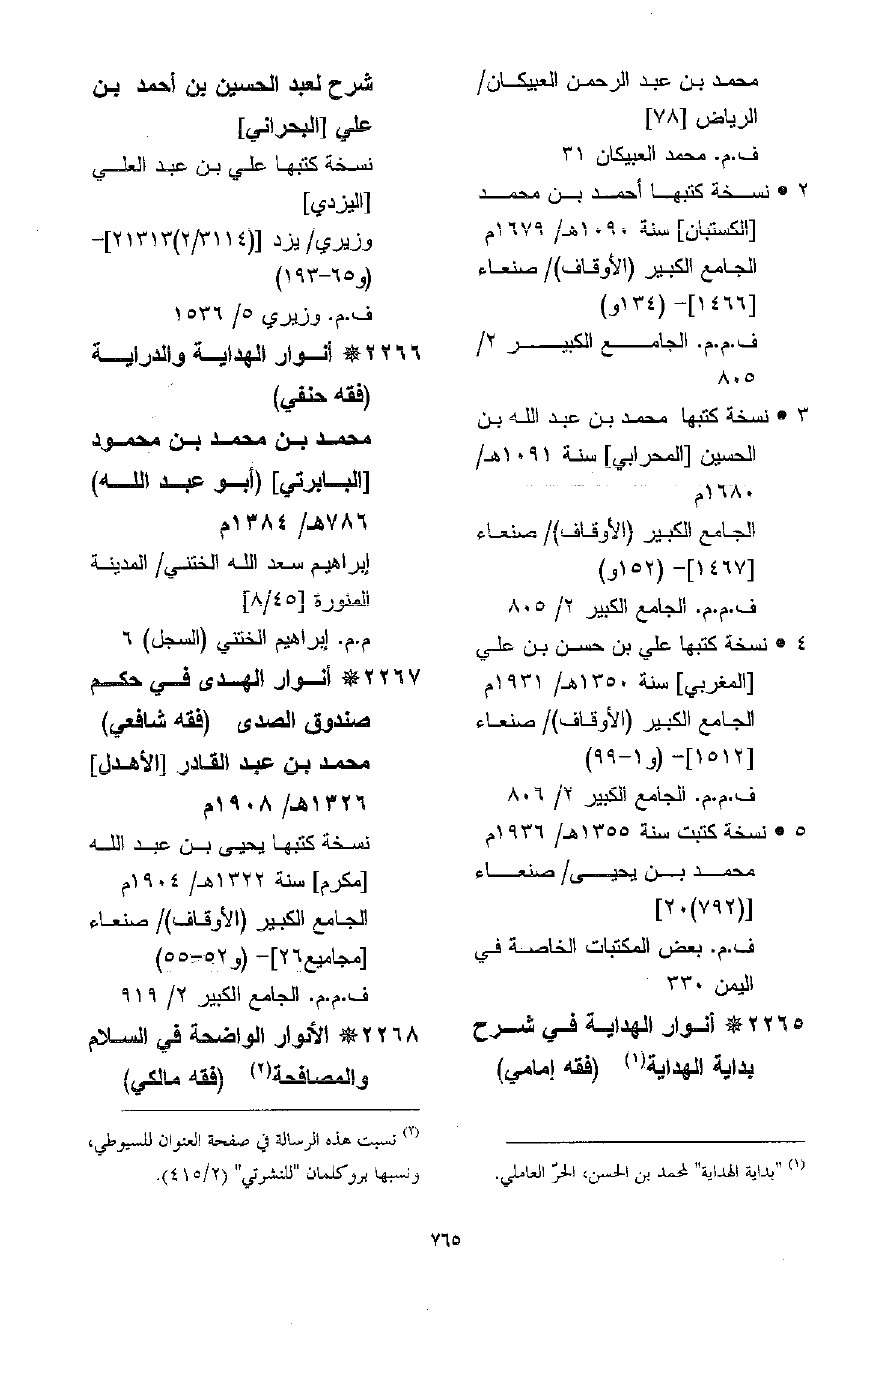 محمد بن عبد الرحمن العبيكان/
الرياض [٧٨]
ف.م. محمد العبيكان ٣١
٢ * نسخة كتبها أحمد بن محمد
[الكستبان] سنة ١٠٩٠هـ/ ١٦٧٩م
الجامع الكبير (الأوقاف)/ صنعاء
[١٤٦٦]– (١٣٤و)
ف.م.م. الجامع الكبير ٢/
٨٠٥
٣ * نسخة كتبها محمد بن عبد الله بن
الحسين [المحرابي] سنة ١٠٩١هـ/
١٦٨٠م
الجامع الكبير (الأوقاف)/ صنعاء
[١٤٦٧]– (١٥٢و)
ف.م.م. الجامع الكبير ٢/ ٨٠٥
٤ * نسخة كتبها علي بن حسن بن علي
[المغربي] سنة ١٣٥٠هـ/ ١٩٣١م
الجامع الكبير (الأوقاف)/ صنعاء
[١٥١٢]– (و١–٩٩)
ف.م.م. الجامع الكبير ٢/ ٨٠٦
٥ * نسخة كتبت سنة ١٣٥٥هـ/ ١٩٣٦م
محمد بن يحيى/ صنعاء
[(٧٩٢)٢٠]
ف.م. بعض المكتبات الخاصة في
اليمن ٣٣٠
٢٢٦٥* أنوار الهداية في شرح
بداية الهداية(١) (فقه إمامي)
(١) "بداية الهداية" لمحمد بن الحسن، الحرّ العاملي.
شرح لعبد الحسين بن أحمد بن
علي [البحراني]
نسخة كتبها علي بن عبد العلي
[اليزدي]
وزيري/ يزد [(٢/٣١١٤)٢١٣١٣]–
(و٦٥–١٩٣)
ف.م. وزيري ٥/ ١٥٣٦
٢٢٦٦* أنوار الهداية والدراية
(فقه حنفي)
محمد بن محمد بن محمود
[البابرتي] (أبو عبد الله)
٧٨٦هـ/ ١٣٨٤م
إبراهيم سعد الله الختني/ المدينة
المنورة [٨/٤٥]
م.م. إبراهيم الختني (السجل) ٦
٢٢٦٧* أنوار الهدى في حكم
صندوق الصدى (فقه شافعي)
محمد بن عبد القادر [الأهدل]
١٣٢٦هـ/ ١٩٠٨م
نسخة كتبها يحيى بن عبد الله
[مكرم] سنة ١٣٢٢هـ/ ١٩٠٤م
الجامع الكبير (الأوقاف)/ صنعاء
[مجاميع٢٦]– (و٥٢–٥٥)
ف.م.م. الجامع الكبير ٢/ ٩١٩
٢٢٦٨* الأنوار الواضحة في السلام
والمصافحة(٢) (فقه مالكي)
(٢) نسبت هذه الرسالة في صفحة العنوان للسيوطي،
ونسبها بروكلمان "للنشرتي" (٤١٥/٢).
٧٦٥